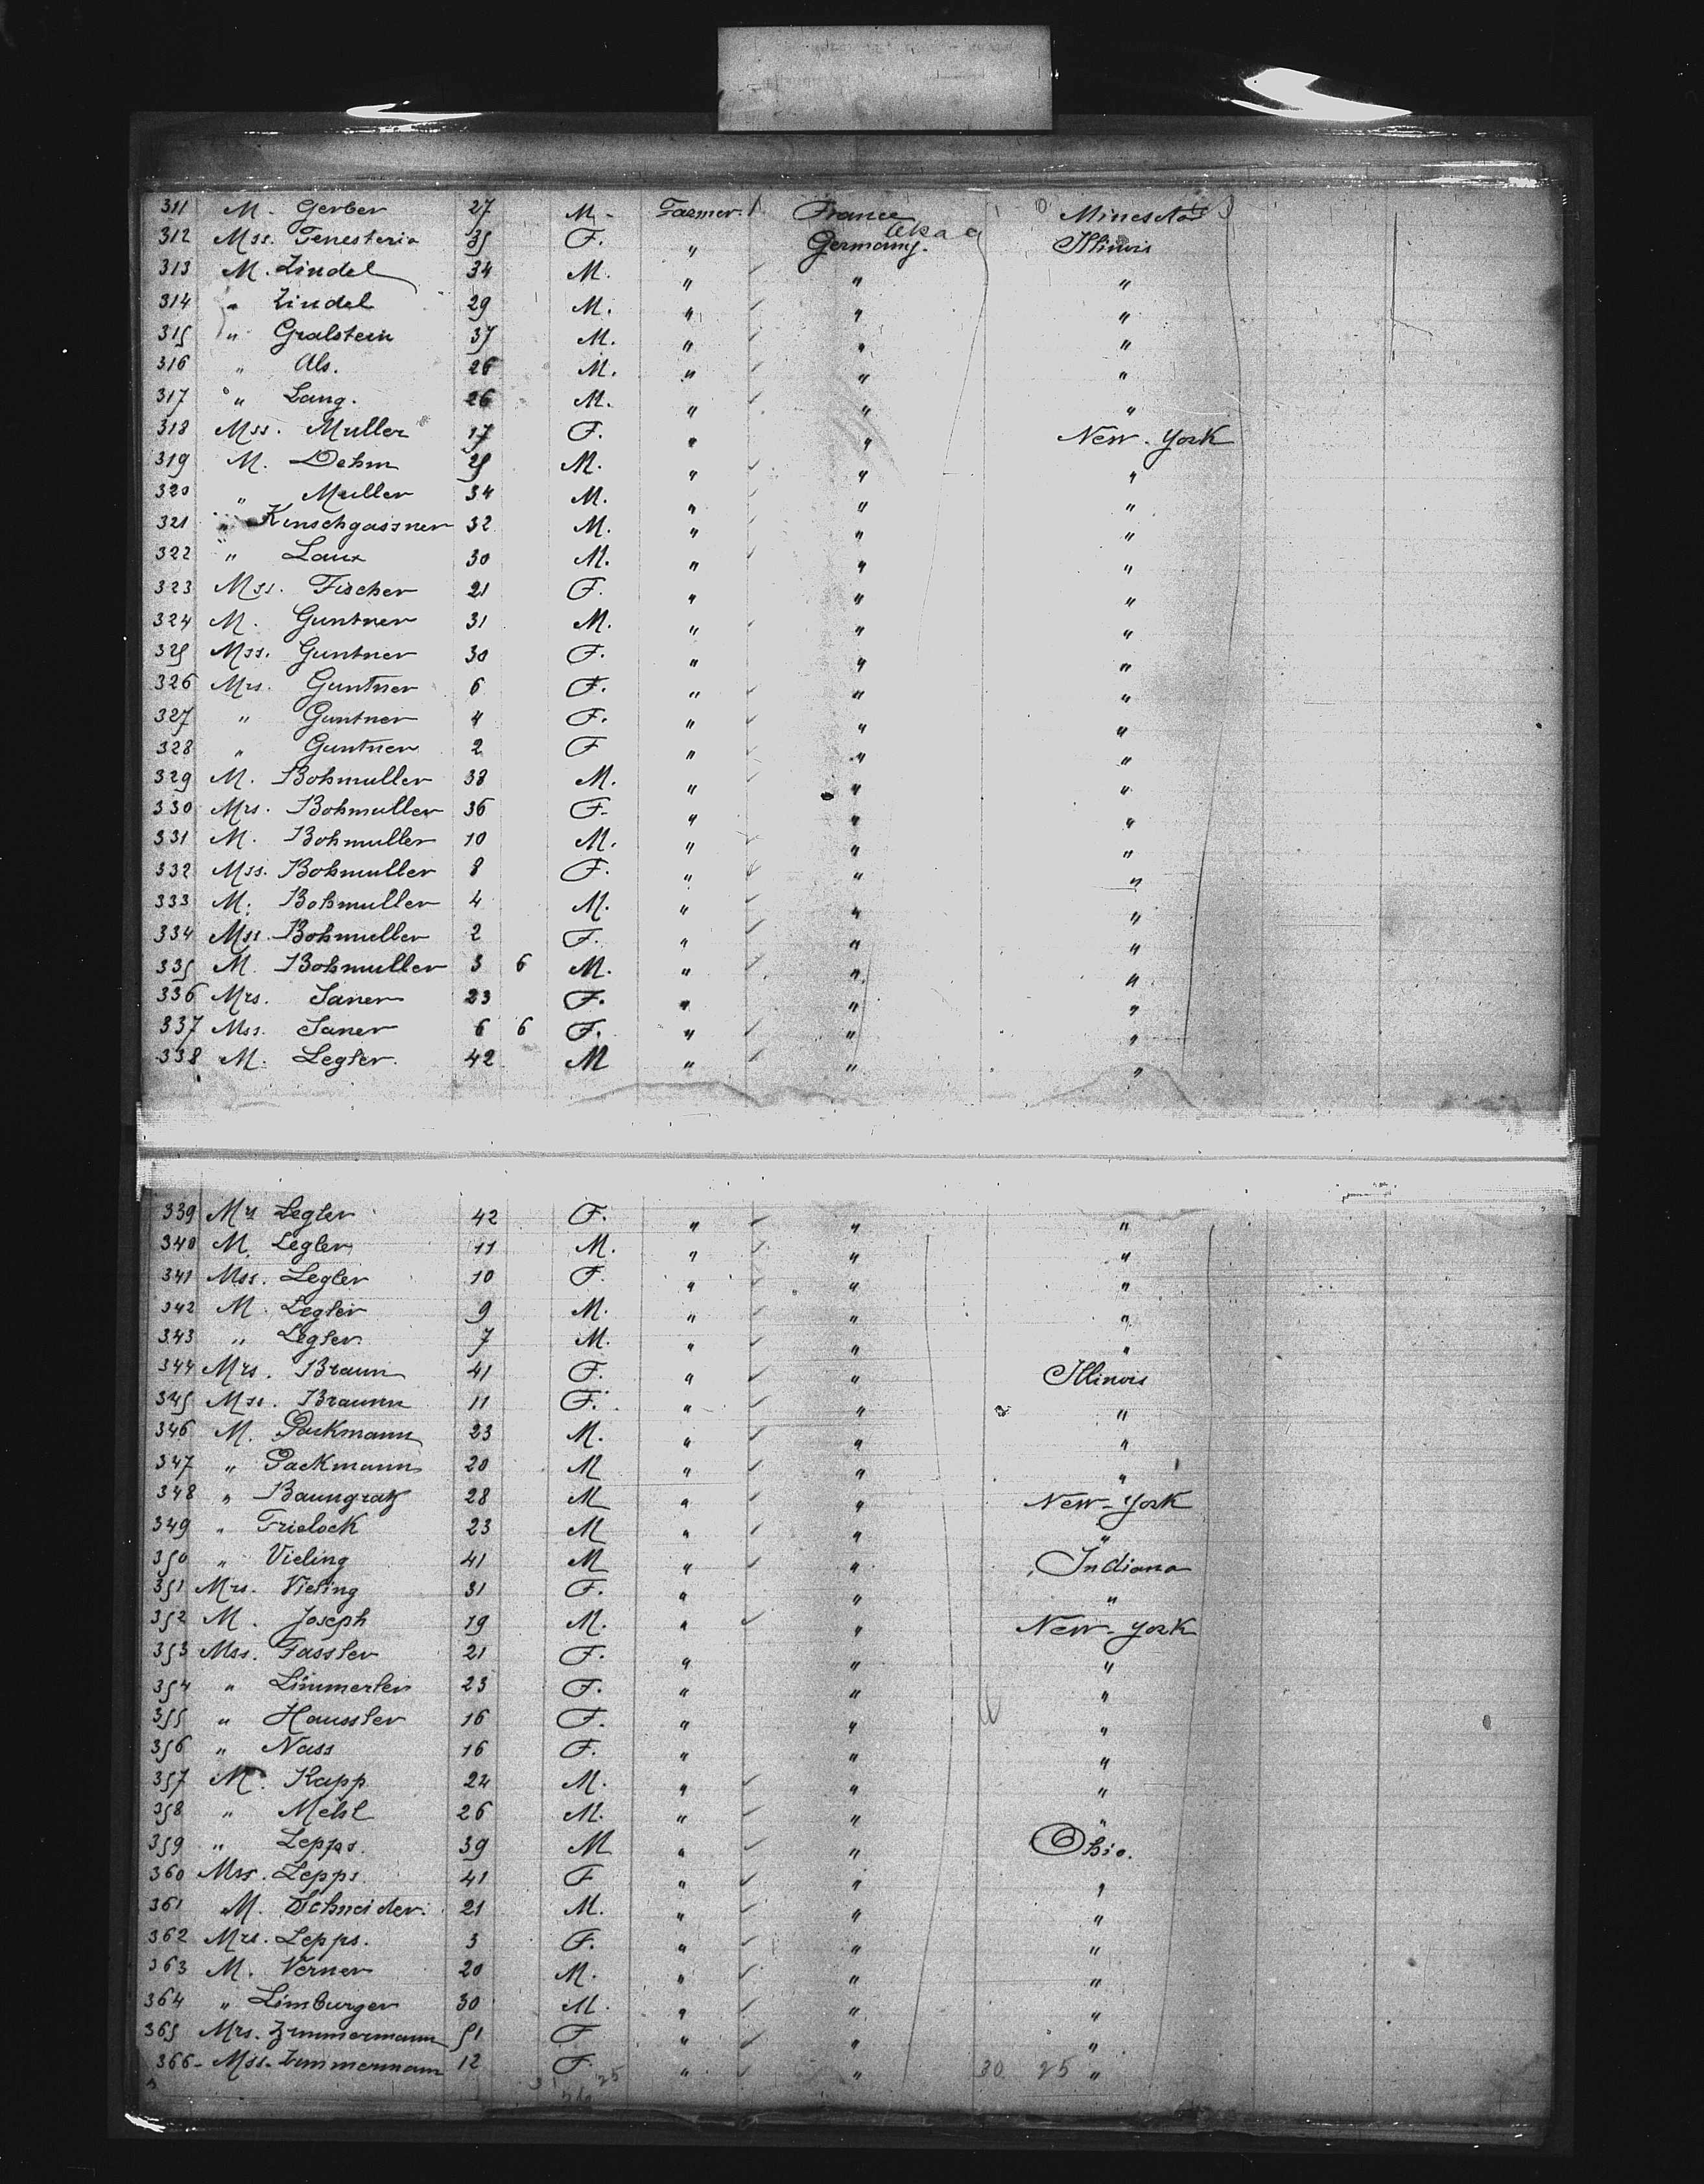 311 M. Gerber 27 M. Farmer. France Minesota
312 Mss. Fenesteria 35 F. " Germany. Illinois
313 M. Zindel 34 M. " " "
314 " Zindel 29 M. " " "
315 " Gralstein 37 M. " " "
316 " Als. 26 M. " " "
317 " Lang. 26 M. " " "
318 Mss. Muller 17 F. " " New-York
319 M. Dehm 25 M. " " "
320 " Muller 34 M. " " "
321 " Kinschgassner 32 M. " " "
322 " Laux 30 M. " " "
323 Mss. Fischer 21 F. " " "
324 M. Guntner 31 M. " " "
325 Mss. Guntner 30 F. " " "
326 Mrs. Guntner 6 F. " " "
327 " Guntner 4 F. " " "
328 " Guntner 2 F " " "
329 M. Bohmuller 38 M. " " "
330 Mrs. Bohmuller 36 F. " " "
331 M. Bohmuller 10 M. " " "
332 Mss. Bohmuller 8 F. " " "
333 M. Bohmuller 4 M. " " "
334 Mss. Bohmuller 2 F. " " "
335 M. Bohmuller 3 6 M. " " "
336 Mrs. Saner 23 F. " " "
337 Mss. Saner 6 6 F. " " "
338 M. Legler. 42 M " " "
339 Mrs Legler 42 F. " " "
340 M. Legler 11 M. " " "
341 Mss. Legler 10 F. " " "
342 M. Legler 9 M. " " "
343 " Legler. 7 M. " " "
344 Mrs. Braun 41 F. " " Illinois
345 Mss. Braunn 11 F. " " "
346 M. Packmann 23 M. " " "
347 " Packmann 20 M " " "
348 " Baungratz 28 M " " New-York
349 " Frielock 23 M " " "
350 " Vieling 41 M " " Indiana
351 Mrs. Vieling 31 F. " " "
352 M. Joseph 19 M. " " New-York
353 Mss. Fassler 21 F. " " "
354 " Limmerler 23 F. " " "
355 " Haussler 16 F. " " "
356 " Nass 16 F. " " "
357 M. Kapp 22 M. " " "
358 " Mehl 26 M. " " "
359 " Lepps. 39 M " " Ohio.
360 Mrs. Lepps. 41 F " " "
361 M. Schneider. 21 M. " " "
362 Mrs. Lepps. 3 F. " " "
363 M. Verner 20 M. " " "
364 " Limburger 30 M. " " "
365 Mrs. Zimmermann 51 F " " "
366 - Mss. Zimmermann 12 F. " " 30 25 "